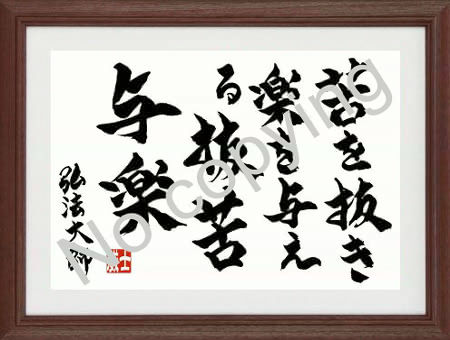 苦を抜き
楽を与え
る抜苦
与楽
弘法大師
No copying